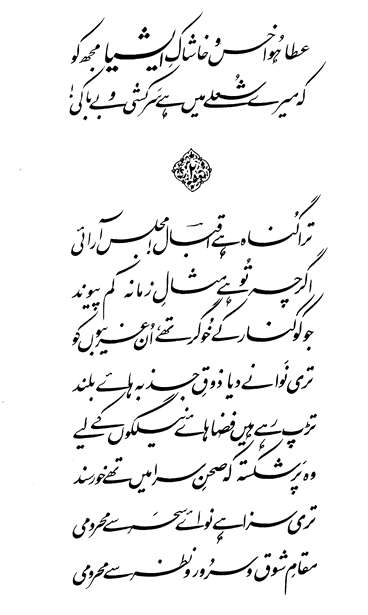 عطا ہُوا خس و خاشاکِ ایشیا مجھ کو
کہ میرے شُعلے میں ہے سَرکشی و بے باکی!
ترا گُناہ ہے اقبالؔ! مجلس آرائی
اگرچہ تُو ہے مثالِ زمانہ کم پیوند
جو کوکنار کے خُوگر تھے، اُن غریبوں کو
تری نَوا نے دیا ذوقِ جذبہ ہائے بلند
تڑپ رہے ہیں فضا ہائے نیلگوں کے لیے
وہ پَر شکستہ کہ صحنِ سرا میں تھے خورسند
تری سزا ہے نوائے سحَر سے محرومی
مقامِ شوق و سُرور و نظَر سے محرومی